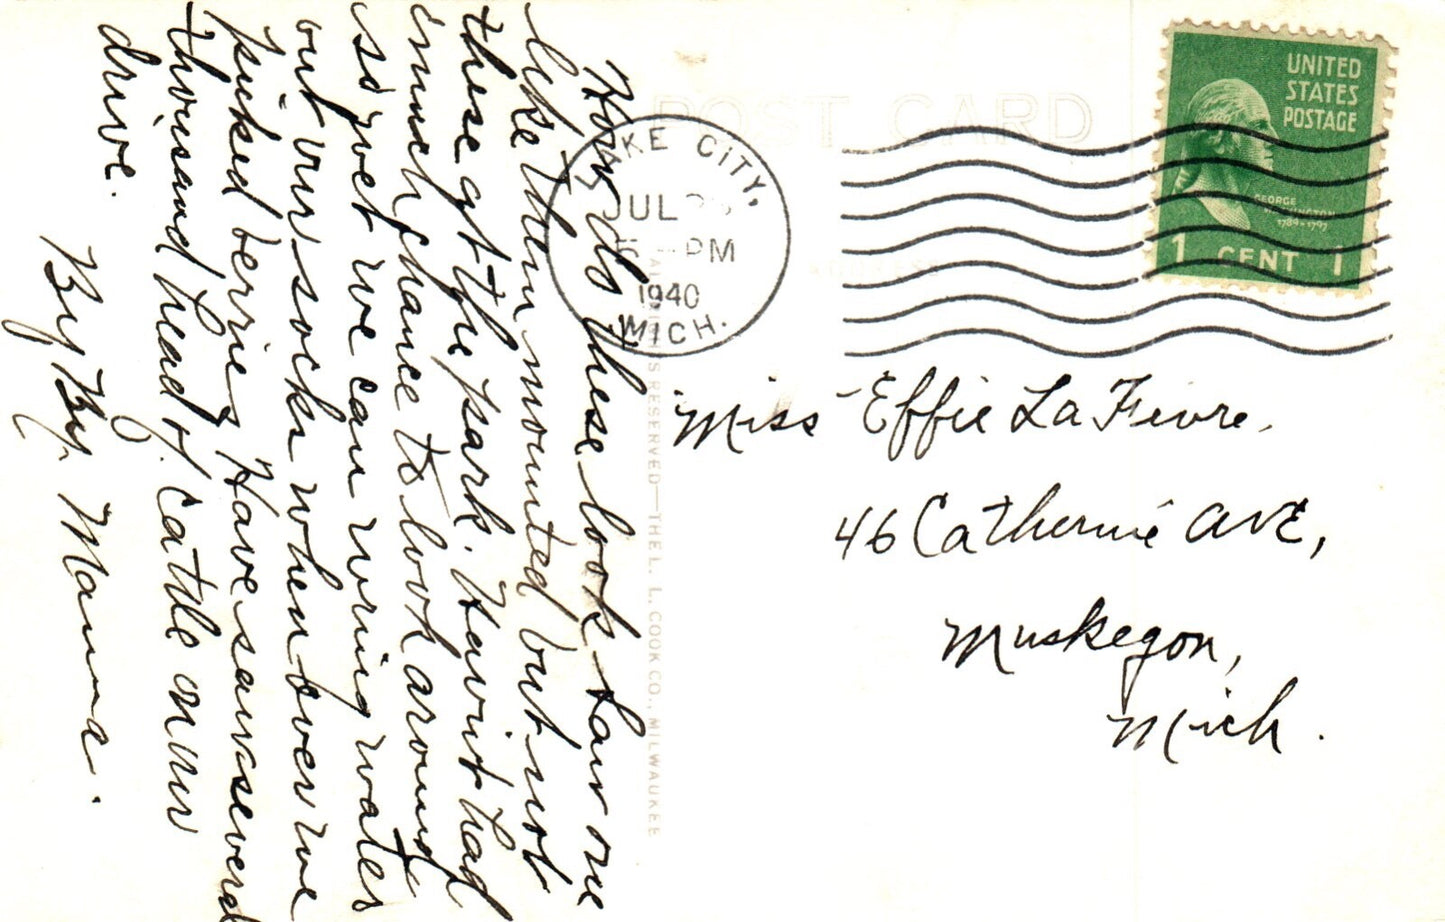 How do these look. Saw one
like them mounted but not
these at the park. Havint had
much chance to look around
so wet we can wring water
out our socks when ever we
picked berries. Have saw several
thousand head of cattle on our
drive.
By By. Mamma.
POST CARD
ADDRESS
KE CITY,
JUL
PM
1940
MICH.
UNITED
STATES
POSTAGE
GEORGE
WASHINGTON
1789-1797
1 CENT 1
RIGHTS RESERVED—THE L. L. COOK CO., MILWAUKEE
Miss Effie LaFevre.
46 Catherine AVE,
Muskegon,
Mich.